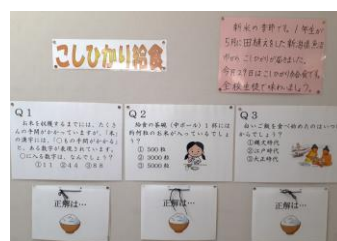 こしひかり給食
新米の季節です。1年生が
5月に田植えをした新潟県
から こしひかりが届きました。
今月29日はこしひかり給食です。
全校生徒で味わいましょう。
Q1
お米を収穫するまでには、たくさ
んの手間がかかっていますが、「米」
の漢字には、「○もの手間がかかる」
と、ある数字が表現されています。
○に入る数字は、なんでしょう？
①11 ②44 ③88
Q2
給食の茶碗（中ボール）1杯には
約何粒のお米が入っているでしょ
う？
① 500粒
② 3000粒
③ 5000粒
Q3
白いご飯を食べ始めたのはいつ
からでしょう？
①縄文時代
②江戸時代
③大正時代
正解は…
正解は…
正解は…